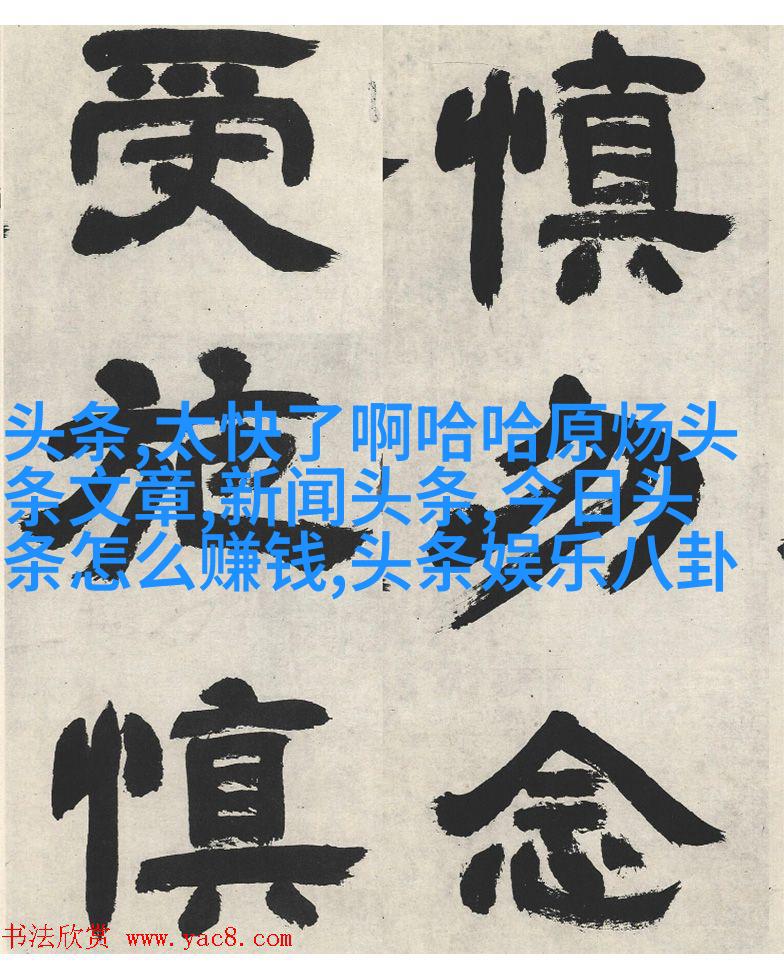 慎勿念
受施慎
头条,太快了啊哈哈原炀头
条文章,新闻头条,今日头
条怎么赚钱,头条娱乐八卦
书法欣赏 www.yac8.com